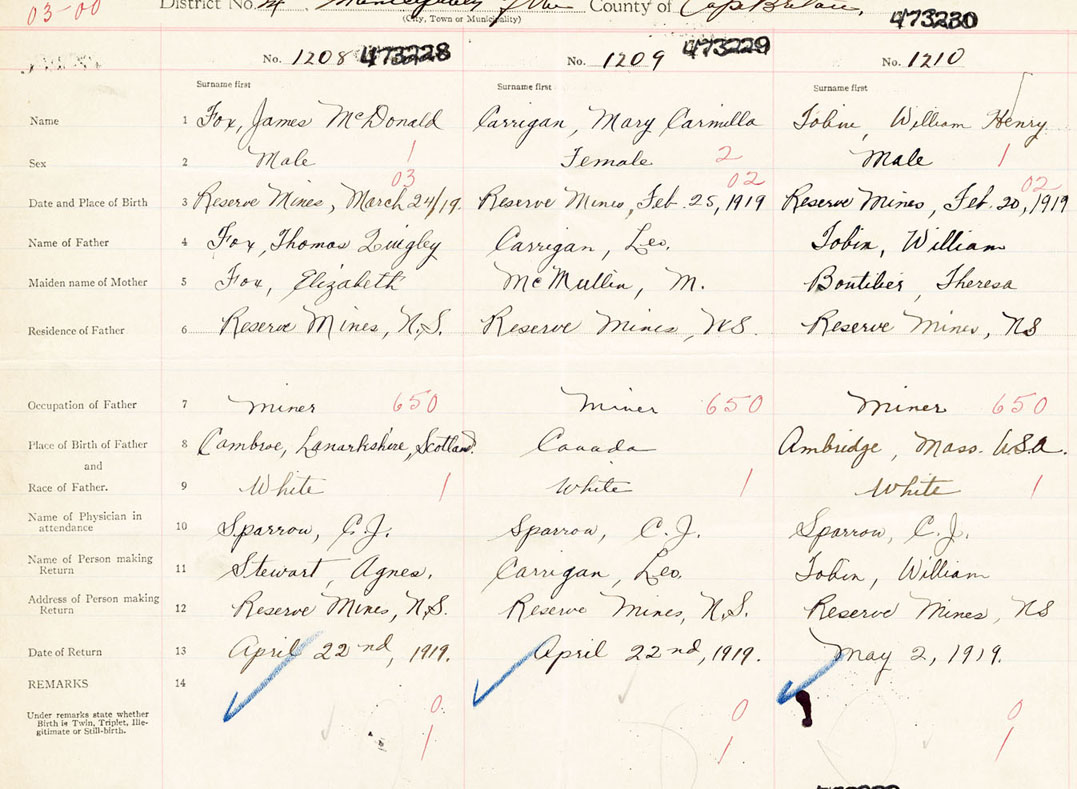 03-00
District No. 4 County of Cape Breton,
(City, Town or Municipality)
473230
No. 1208 473228 No. 1209 473229 No. 1210
Surname first Surname first Surname first
Name 1 Fox, James McDonald Carrigan, Mary Carmilla Tobin, William Henry
Sex 2 Male 1 Female 2 Male 1
03 02 02
Date and Place of Birth 3 Reserve Mines, March 24/19. Reserve Mines, Feb. 25, 1919 Reserve Mines, Feb. 20, 1919
Name of Father 4 Fox, Thomas Quigley Carrigan, Leo. Tobin, William
Maiden name of Mother 5 Fox, Elizabeth McMullin, M. Boutilier, Theresa
Residence of Father 6 Reserve Mines, N.S. Reserve Mines, NS. Reserve Mines, NS
Occupation of Father 7 Miner 650 Miner 650 Miner 650
Place of Birth of Father 8 Cambroe, Lanarkshire, Scotland. Canada Ambridge, Mass. USA.
and
Race of Father. 9 White 1 White 1 White 1
Name of Physician in
attendance 10 Sparrow, C.J. Sparrow, C.J. Sparrow, C.J.
Name of Person making
Return 11 Stewart, Agnes. Carrigan, Leo. Tobin, William
Address of Person making
Return 12 Reserve Mines, N.S. Reserve Mines, N.S. Reserve Mines, NS
Date of Return 13 April 22nd, 1919. April 22nd, 1919. May 2, 1919.
REMARKS 14
Under remarks state whether
Birth is Twin, Triplet, Ille-
gitimate or Still-birth.
0 0 0
1 1 1